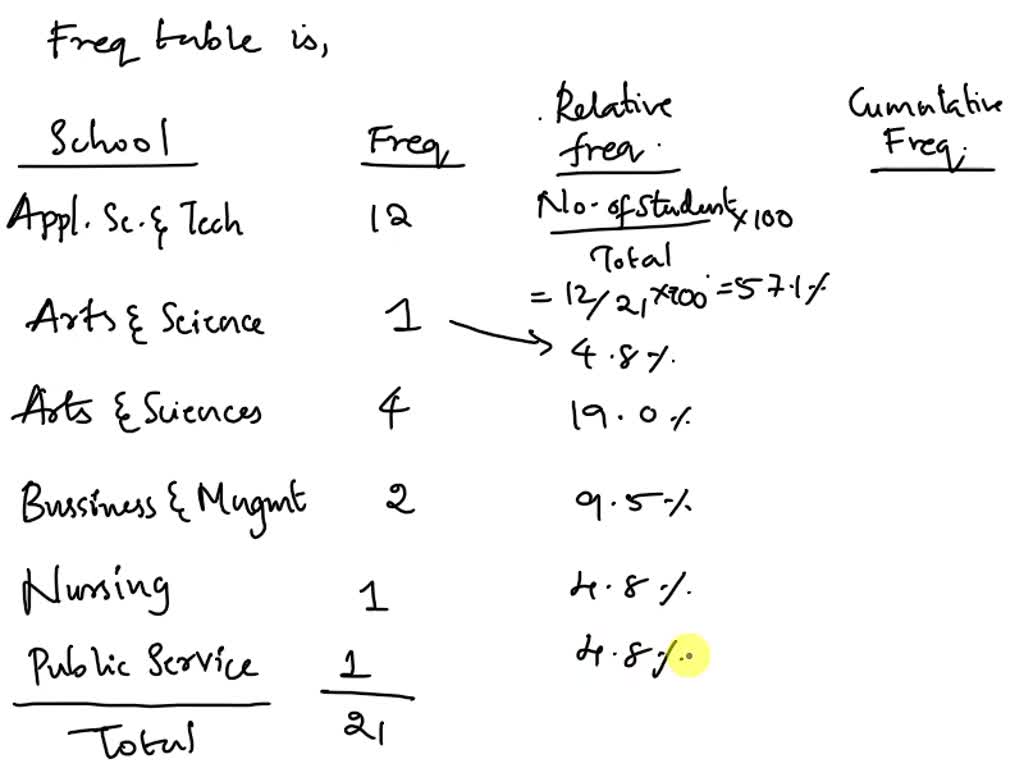 Freq table is,
School Freq Relative freq. Cumulative Freq.
Appl. Sc. & Tech 12 No. of Student/Total × 100
= 12/21 × 100 = 57.1%
Arts & Science 1 → 4.8%
Arts & Sciences 4 19.0%
Bussiness & Mngmt 2 9.5%
Nursing 1 4.8%
Public Service 1 4.8%
Total 21